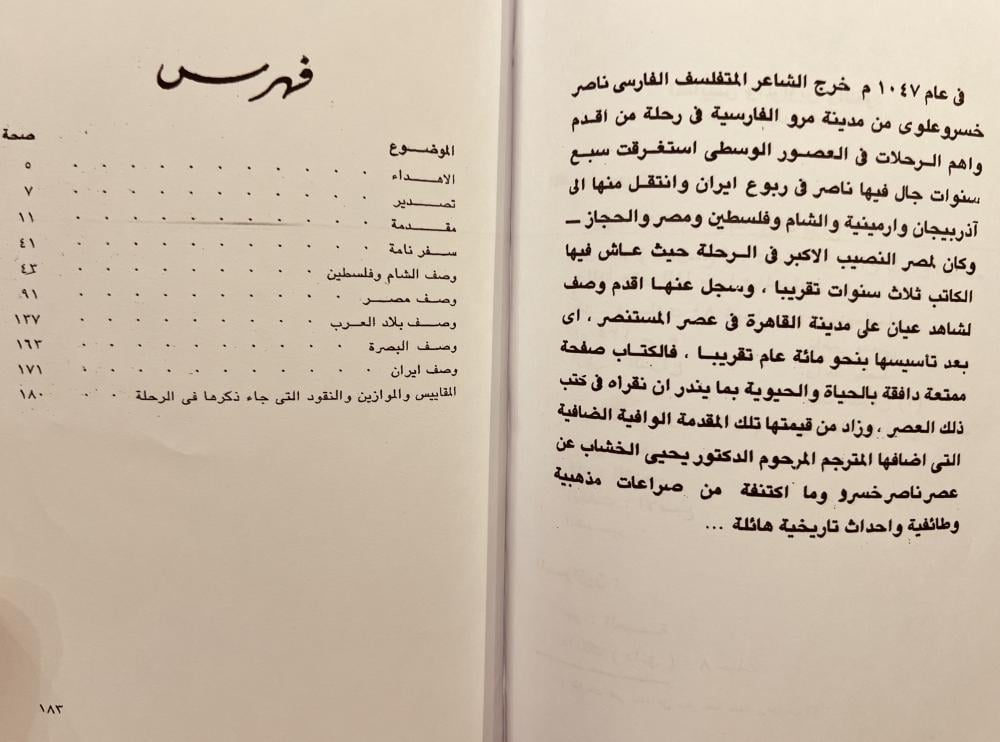 فى عام ١٠٤٧ م خرج الشاعر المتفلسف الفارسى ناصر
خسروعلوى من مدينة مرو الفارسية فى رحلة من اقدم
واهم الرحلات فى العصور الوسطى استغرقت سبع
سنوات جال فيها ناصر فى ربوع ايران وانتقل منها الى
آذربيجان وارمينية والشام وفلسطين ومصر والحجاز ــ
وكان لمصر النصيب الاكبر فى الرحلة حيث عاش فيها
الكاتب ثلاث سنوات تقريبا ، وسجل عنها اقدم وصف
لشاهد عيان على مدينة القاهرة فى عصر المستنصر ، اى
بعد تأسيسها بنحو مائة عام تقريبا ، فالكتاب صفحة
ممتعة دافقة بالحياة والحيوية بما يندر ان نقراه فى كتب
ذلك العصر ، وزاد من قيمتها تلك المقدمة الوافية الضافية
التى اضافها المترجم المرحوم الدكتور يحيى الخشاب عن
عصر ناصر خسرو وما اكتنفة من صراعات مذهبية
وطائفية واحداث تاريخية هائلة ...
فهرس
الموضوع صفحة
الاهداء . . . . . . . . . . ٥
تصدير . . . . . . . . . . ٧
مقدمة . . . . . . . . . . ١١
سفر نامة . . . . . . . . . . ٤١
وصف الشام وفلسطين . . . . . . . . ٤٣
وصف مصر . . . . . . . . . . ٩١
وصف بلاد العرب . . . . . . . . ١٣٧
وصف البصرة . . . . . . . . . ١٦٣
وصف ايران . . . . . . . . . . ١٧١
المقاييس والموازين والنقود التى جاء ذكرها فى الرحلة . . ١٨٠
١٨٣